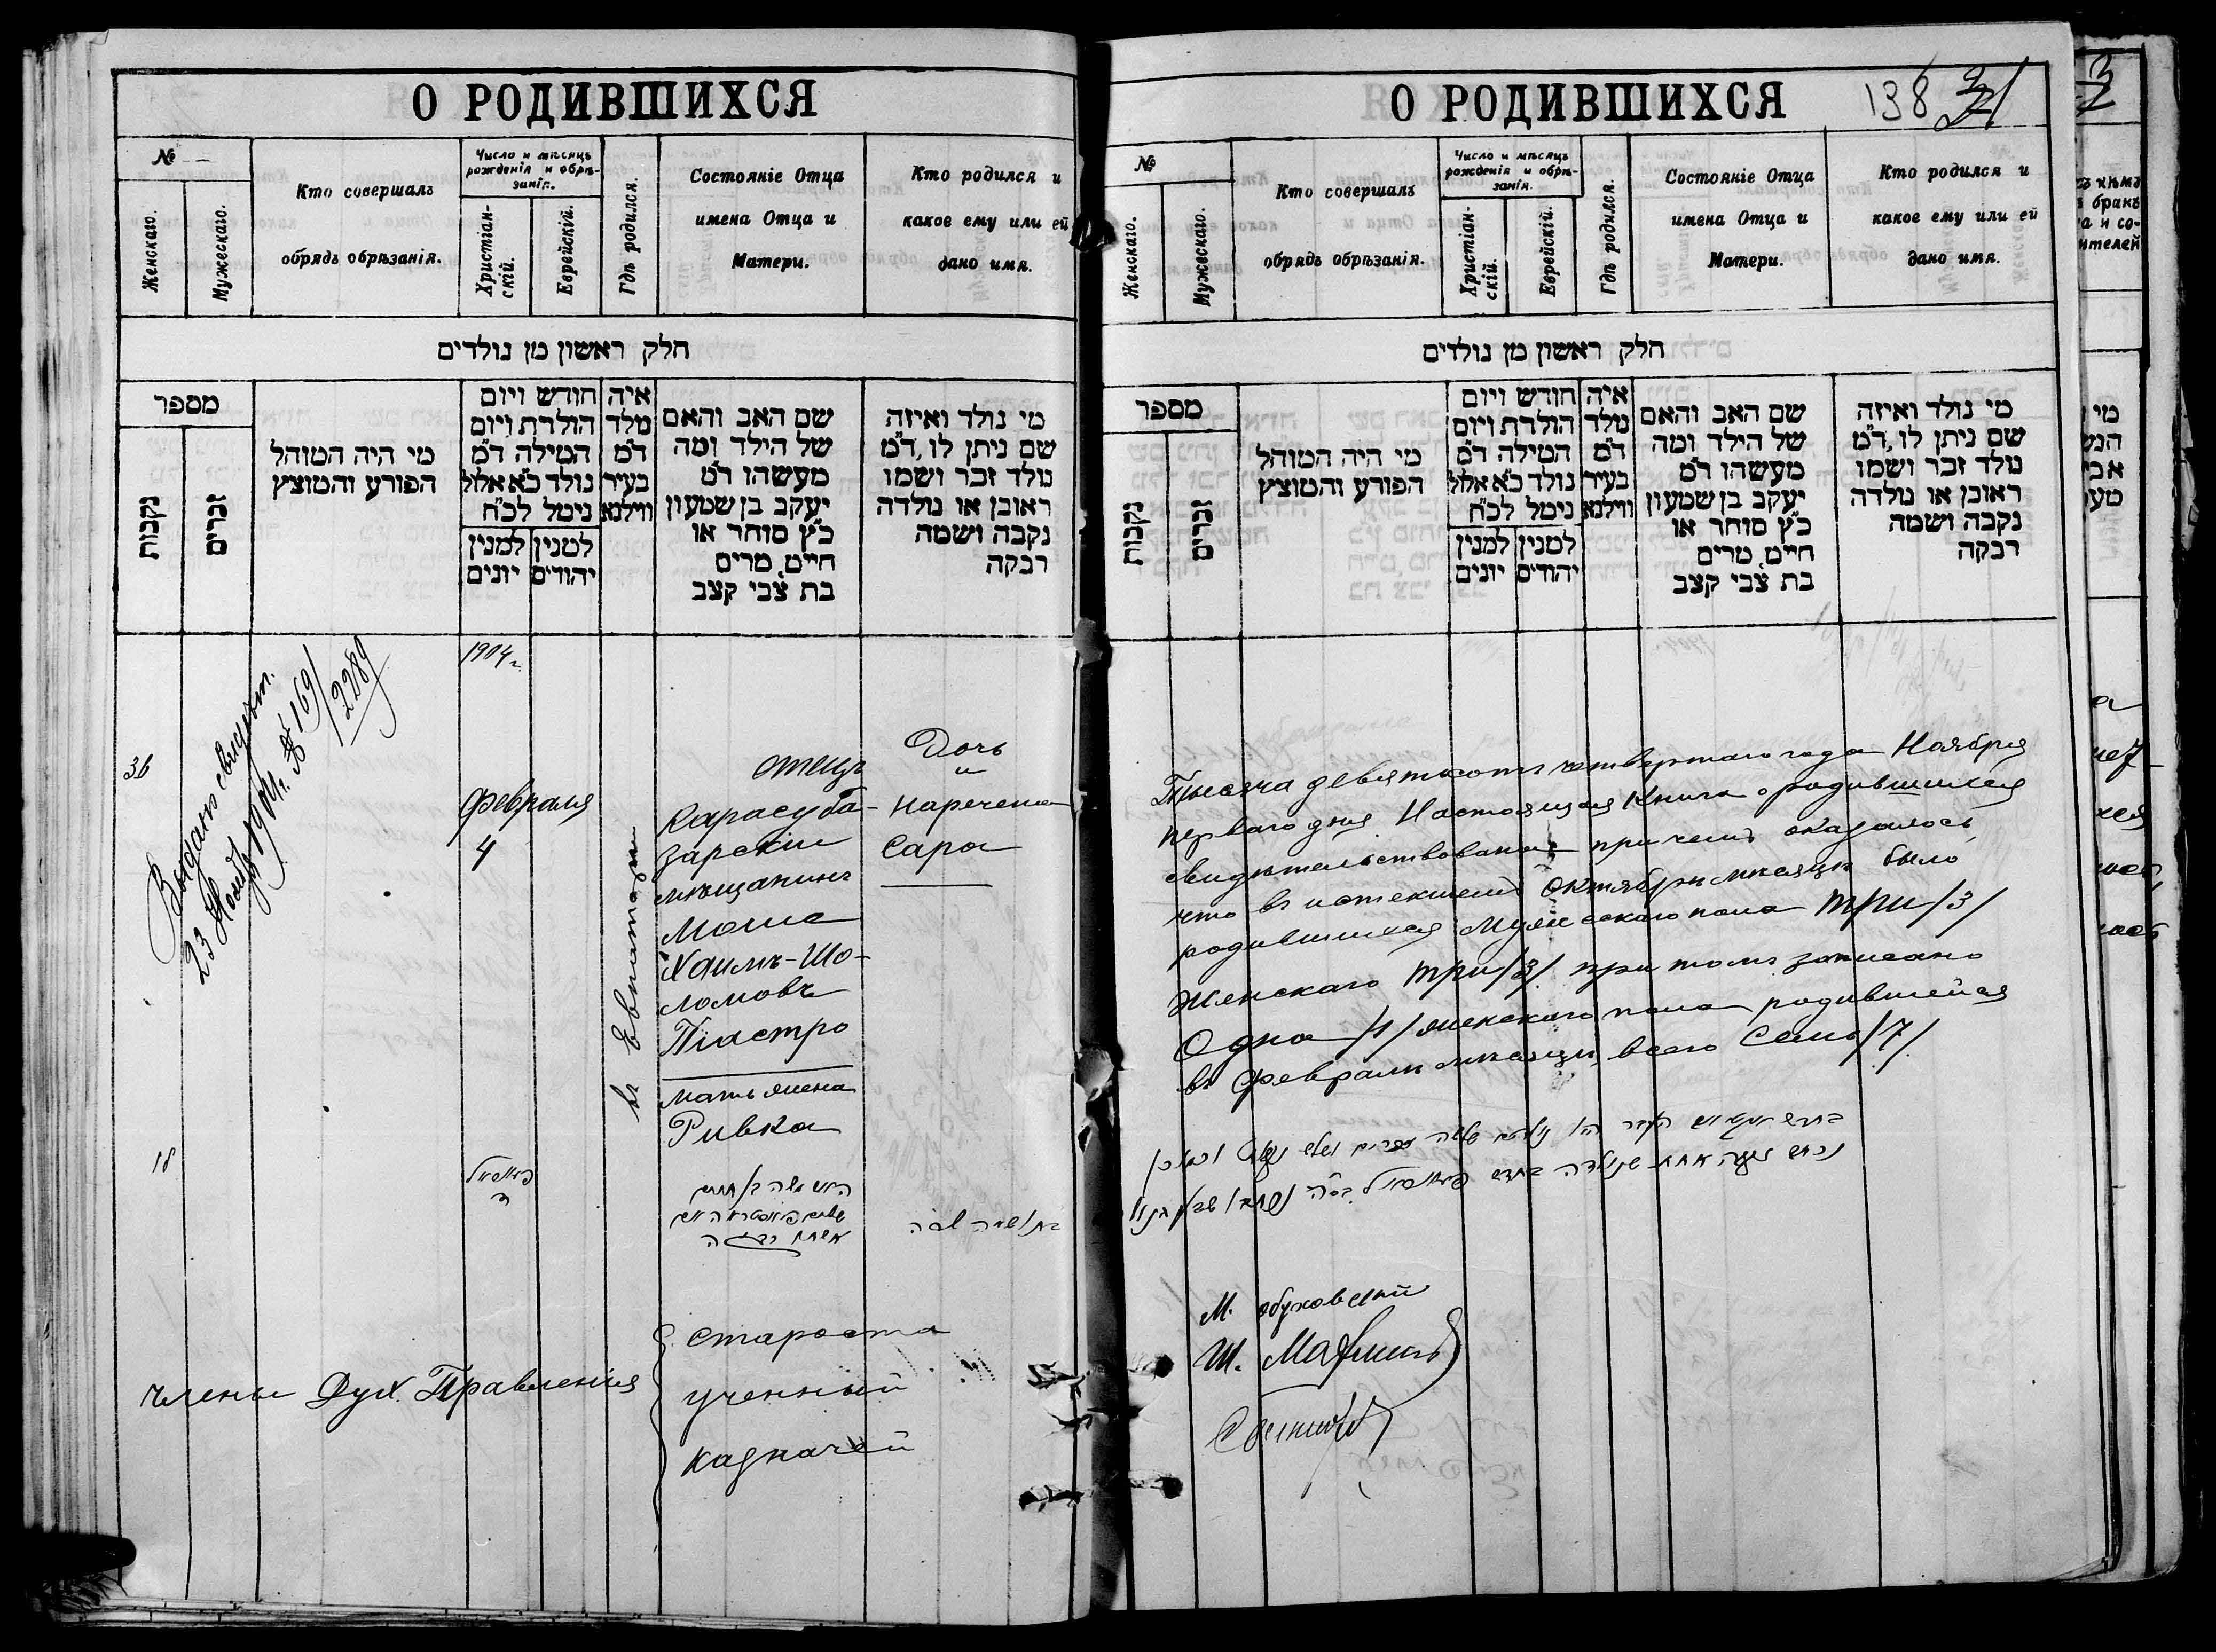 О РОДИВШИХСЯ
№
Женскаго.
Мужескаго.
Кто совершалъ
обрядъ обрѣзанія.
Число и мѣсяцъ
рожденія и обрѣ-
занія.
Христіан-
скій.
Еврейскій.
Гдѣ родился.
Состояніе Отца
имена Отца и
Матери.
Кто родился и
какое ему или ей
дано имя.
חלק ראשון מן נולדים
מספר
נקבות
זכרים
מי היה המוהל
הפורע והמוצץ
חודש ויום
הולדת ויום
המילה ד״מ
נולד כ״א אלול
נימל לכ״ח
למנין יהודים
למנין יונים
איה
נולד
ד״מ
בעיר
ווילנא
שם האב והאם
של הילד ומה
מעשהו ד״מ
יעקב בן שמעון
כ״ץ סוחר או
חייט, מרים
בת צבי קצב
מי נולד ואיזה
שם ניתן לו, ד״מ
נולד זכר ושמו
ראובן או נולדה
נקבה ושמה
רבקה
Выданъ свидѣт.
23 Нояб. 1904 г. № 169/
2289
36
1904 г.
Февраля
4
въ Евпаторіи
отецъ
Карасуба-
зарскій
мѣщанинъ
Моше
Хаимъ-Шо-
ломовъ
Піастро
мать жена
Ривка
Дочь
и
наречена
Сара
18
Члены Дух. Правленія
Староста
ученный
казначей
О РОДИВШИХСЯ
138
№
Женскаго.
Мужескаго.
Кто совершалъ
обрядъ обрѣзанія.
Число и мѣсяцъ
рожденія и обрѣ-
занія.
Христіан-
скій.
Еврейскій.
Гдѣ родился.
Состояніе Отца
имена Отца и
Матери.
Кто родился и
какое ему или ей
дано имя.
חלק ראשון מן נולדים
מספר
נקבות
זכרים
מי היה המוהל
הפורע והמוצץ
חודש ויום
הולדת ויום
המילה ד״מ
נולד כ״א אלול
נימל לכ״ח
למנין יהודים
למנין יונים
איה
נולד
ד״מ
בעיר
ווילנא
שם האב והאם
של הילד ומה
מעשהו ד״מ
יעקב בן שמעון
כ״ץ סוחר או
חייט, מרים
בת צבי קצב
מי נולד ואיזה
שם ניתן לו, ד״מ
נולד זכר ושמו
ראובן או נולדה
נקבה ושמה
רבקה
Тысяча девятьсотъ четвертаго года Ноября
перваго дня. Настоящая Книга о родившихся
свидѣтельствована при чемъ оказалось,
что въ истекшемъ Октябрѣ мѣсяцѣ было
родившихся Мужескаго пола три /3/
Женскаго три /3/ при томъ записано
Одна /1/ женскаго пола родившейся
въ Февралѣ мѣсяцѣ, всего Семь /7/.
М. Обуховскій
Ш.